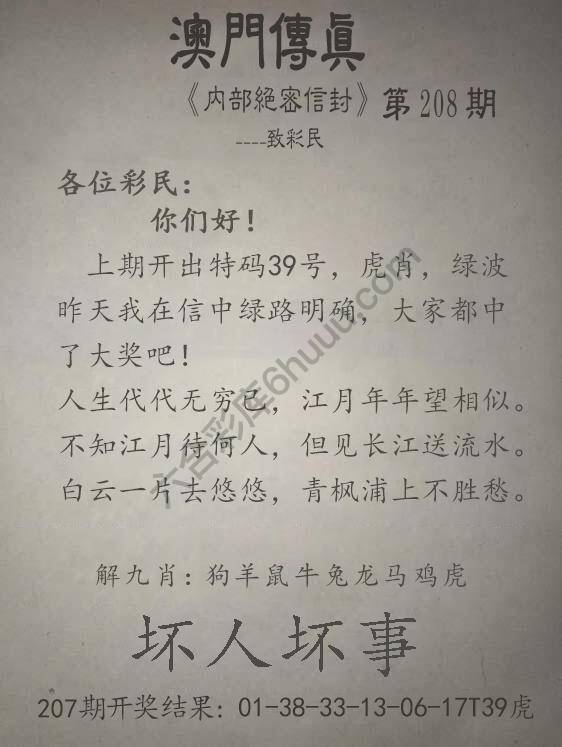 澳門傳真
《内部絕密信封》第208期
----致彩民
各位彩民：
你们好！
上期开出特码39号，虎肖，绿波
昨天我在信中绿路明确，大家都中
了大奖吧！
人生代代无穷已，江月年年望相似。
不知江月待何人，但见长江送流水。
白云一片去悠悠，青枫浦上不胜愁。
解九肖：狗羊鼠牛兔龙马鸡虎
坏人坏事
207期开奖结果：01-38-33-13-06-17T39虎
六合彩库6huuu.com